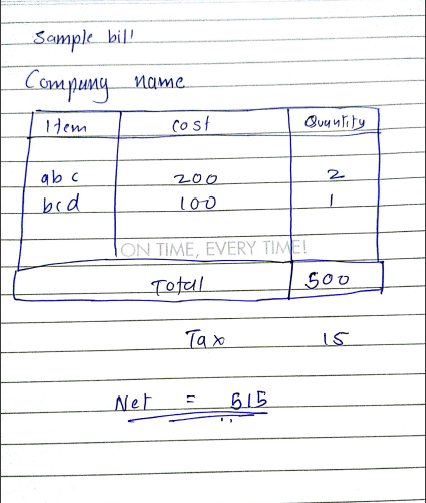 Sample bill
Company name
Item cost Quantity
abc 200 2
bcd 100 1
ON TIME, EVERY TIME!
Total 500
Tax 15
Net = 515